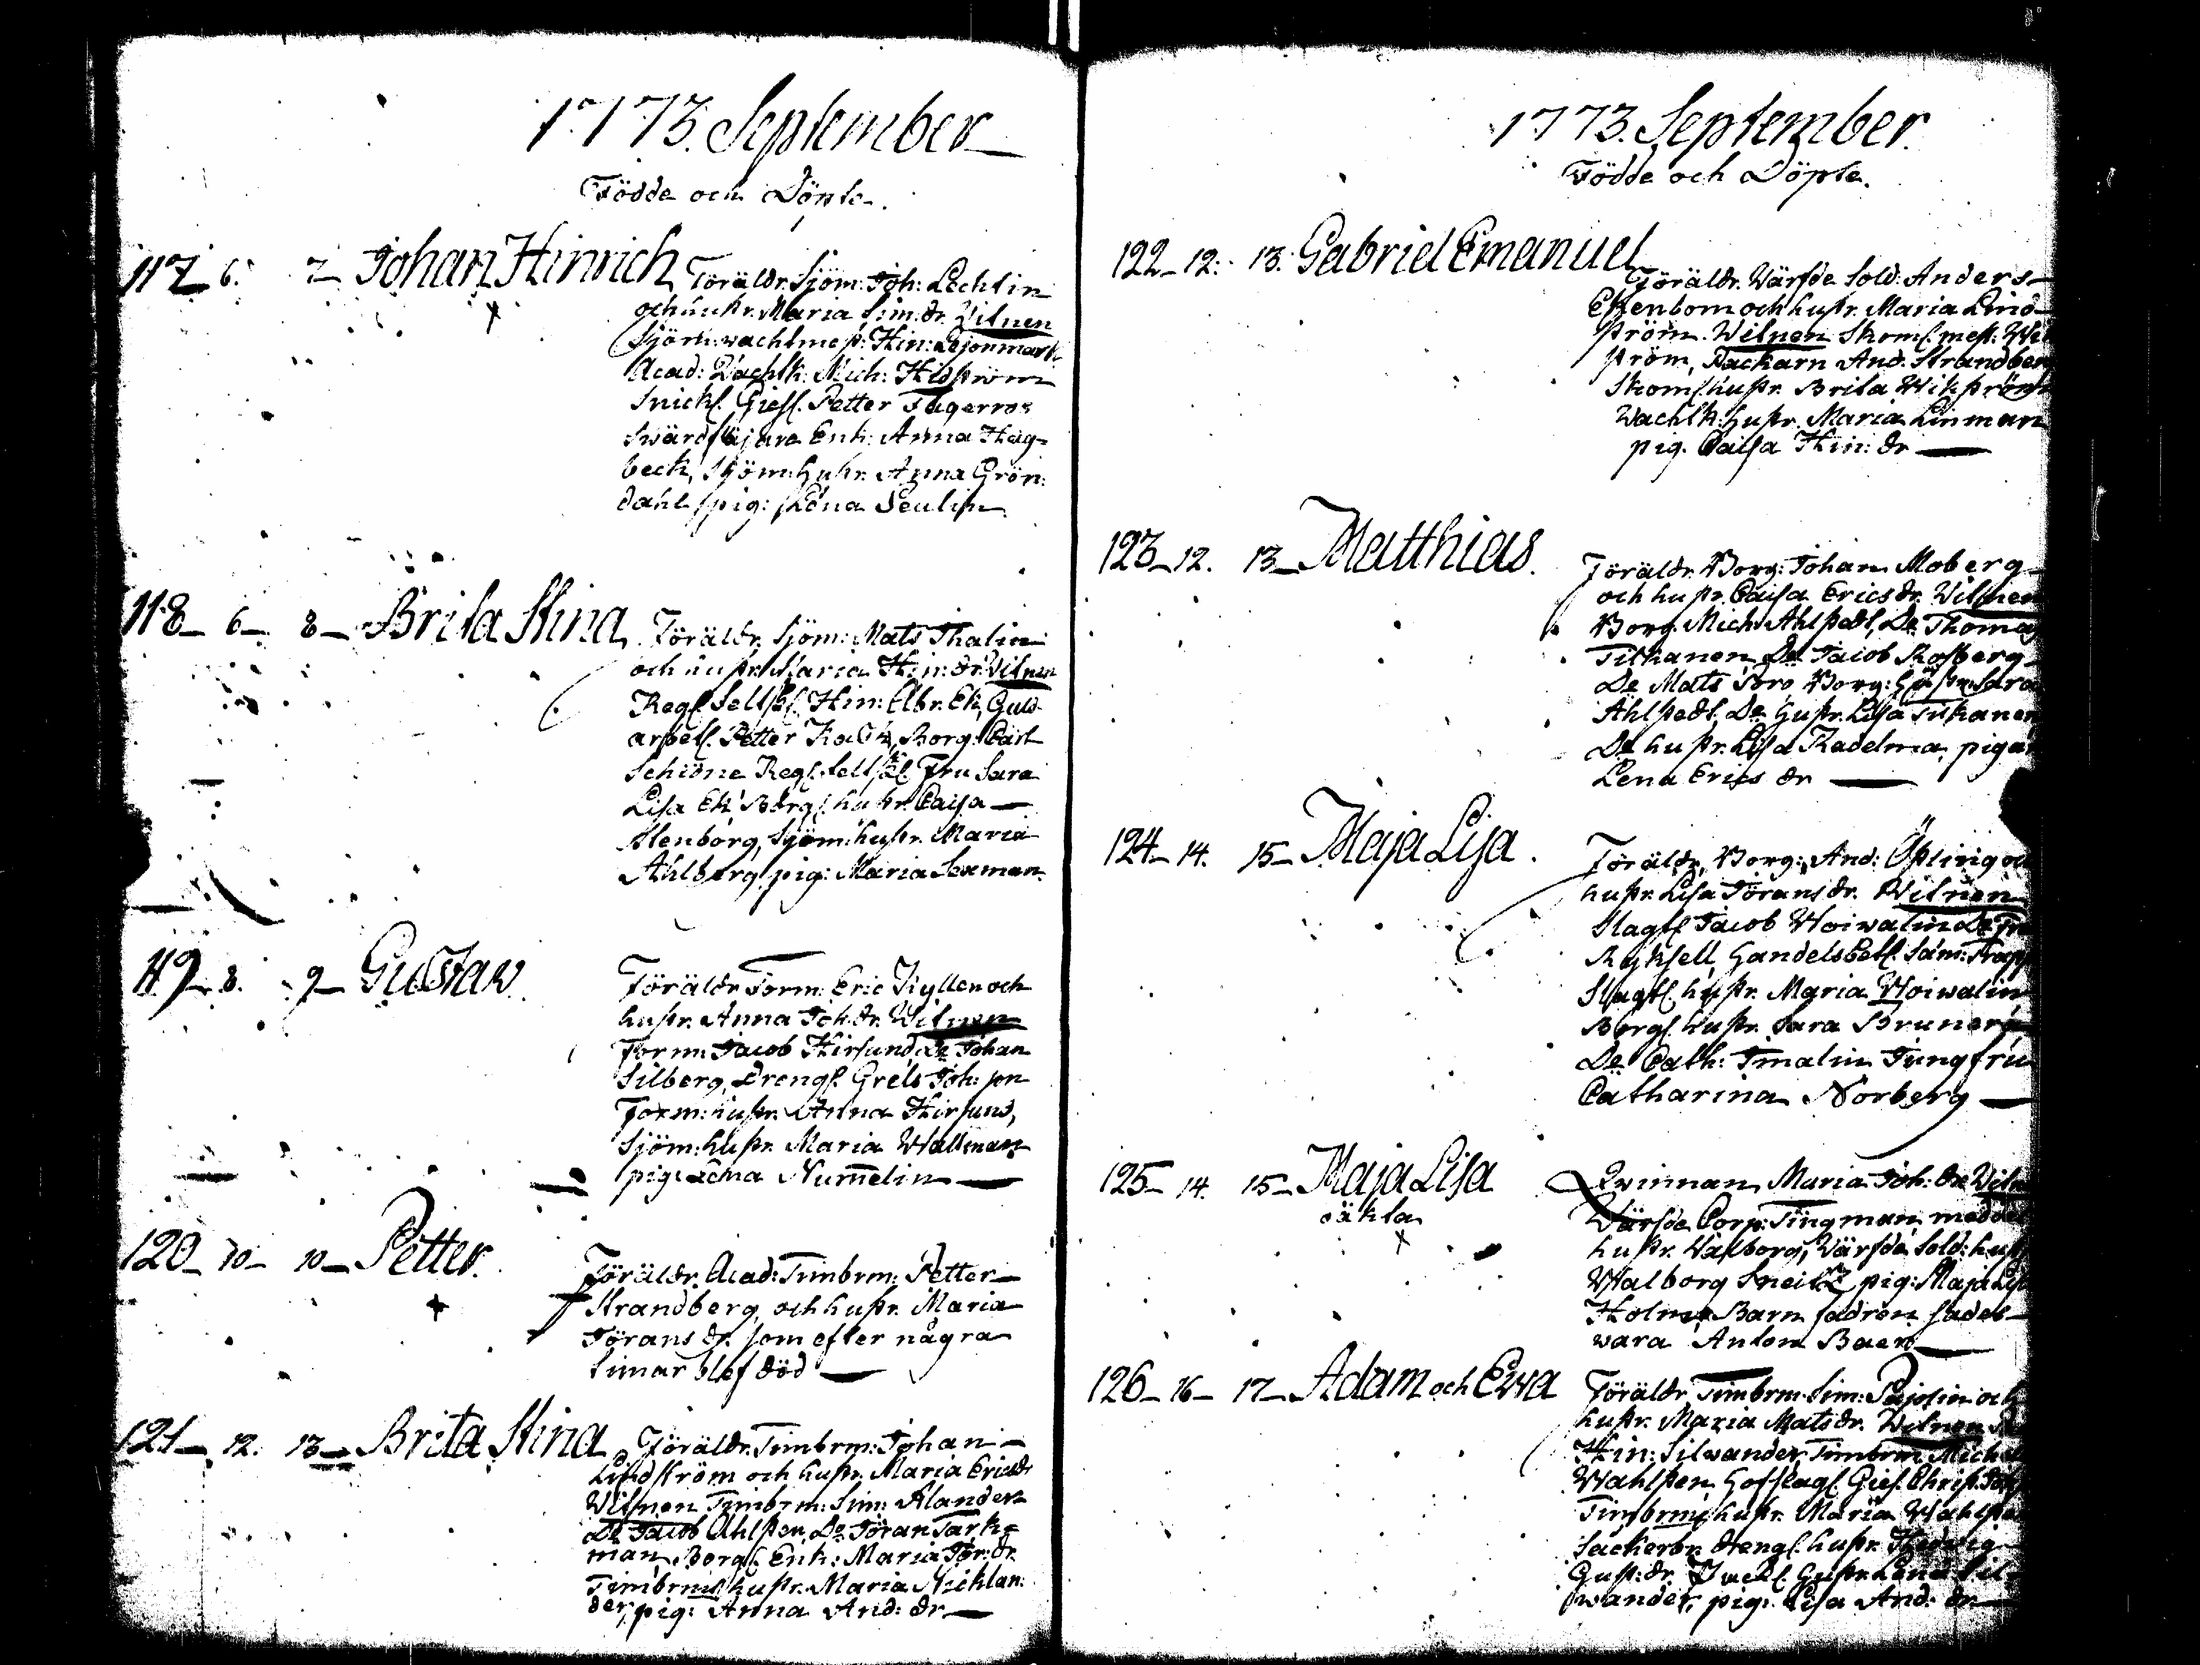 1773. September
Födde och Döpte.
117 6. 7 Johan Hinrich Föräldr. Sjöm: Joh: Lechlin
och hustr. Maria Sim: dr. Vitnen
Sjöm: wachtmest: Hin: Lejonmark
Acad: Wachtk: Mich: Hldström
Snickl. Giesl. Petter Fagerros
Swärdfläjare Enk: Anna Hag-
beck, Sjöm: hustr. Anna Grön-
dahl pig: Lena Peulin
118 6 8 Brita Stina Föräldr. Sjöm: Mats Thalin
och hustr. Maria Hin: dr. Vitnen
Hin: Elbr. Ek, Guld-
Petter Borg: Carl
Schiöne Fru Sara
Lisa Ek Borg: hustr. Caisa
Alenborg, Sjöm: hustr. Maria
Ahlberg pig: Maria Sexman.
119 8. 9 Gustav Föräldr. Torm: Eric Kyllen och
hustr. Anna Joh: dr. Witnen
Torm: Jacob Hirsund, De Johan
Silberg, Drengs. Grels Joh: son
Torm: hustr. Anna Hirsund,
Sjöm: hustr. Maria Wallman
pig: Lena Numelin
120 10 10 Petter. Föräldr. Acad: Timbrm: Petter
Strandberg, och hustr. Maria
Jörans dr. som efter några
timar blef död
121 12. 13 Brita Stina Föräldr. Timbrm: Johan
Lindström och hustr. Maria Ericsdr
Witnen Timbrm: Sim: Alander
De Jacob Ahlsten, De Jöran Tark-
man, Borgl. Enk: Maria Jör: dr.
Timbrmsk hustr. Maria Nicklan-
der, pig: Anna And: dr
1773. September.
Födde och Döpte.
122 12. 13. Gabriel Emanuel
Föräldr. Wärfde Sold: Anders
Ekenbom och hustr. Maria Lind-
ström. Witnen Skom: mest:
ström, Packarn And: Strandber
Skoml hustr. Brita Wikström
Wachtk: hustr. Maria Linman
pig. Caisa Hin: dr
123 12. 13 Matthias. Föräldr. Borg: Johan Moberg
och hustr. Caisa Erics dr. Witnen
Borg: Mich: Ahlstedt, De Thomas
Titkanen, De Jacob Rosberg
De Mats Soro Borg: hustr. Sara
Ahlstedt, De hustr. Lisa Titkanen
De hustr. Lisa Radelma, pigan
Lena Erics dr
124 14. 15 Maja Lisa. Föräldr. Borg: And: Östling och
hustr. Lisa Jörans dr. Witnen
Slagtl Jacob Woiwalin De
Rykfell, Handelsbetl. Sam:
Slagtl. hustr. Maria Woiwalin
Borgl. hustr. Sara Bruner,
De Cath: Timalin Jungfru
Catharina Norberg
125 14. 15 Maja Lisa Qwinnan Maria Joh: dr Witn
oäkta Wärfde Corp: Tingman med des
hustr. Walborg, Wärfde Sold: hust
Walborg Sneitz pig: Maja Lisa
Holm, Barn fadren sades
wara Anton Baer
126 16 17 Adam och Ewa Föräldr. Timbrm: Sim: Pajolin och
hustr. Maria Mats dr. Witnen
Hin: Silwander, Timbrm Michel
Wahlsten, Hofslagl. Gies. Christ.
Timbrmsk hustr. Maria Wahlsten
Säckerbr. drengl. hustr. Hedwig
Gust: dr. hustr. Lena Sil-
wander, pig: Lisa And: dr